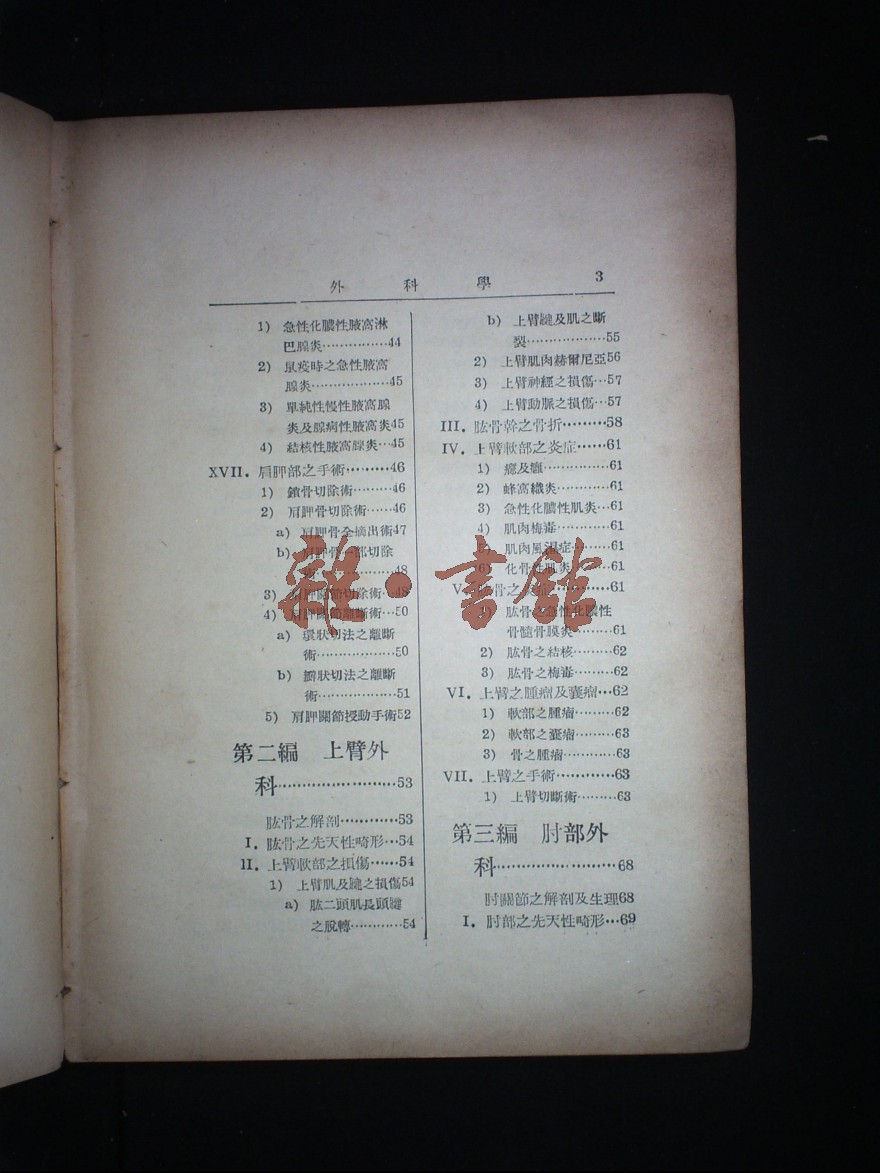 外科學 3
1) 急性化膿性腋窩淋
巴腺炎················44
2) 鼠疫時之急性腋窩
腺炎················45
3) 單純性慢性腋窩腺
炎及腺病性腋窩炎45
4) 結核性腋窩腺炎···45
XVII. 肩胛部之手術·········46
1) 鎖骨切除術·········46
2) 肩胛骨切除術······46
a) 肩胛骨全摘出術47
b) 肩胛骨一部切除
術················48
3) 肩胛關節切除術···48
4) 肩胛關節離斷術···50
a) 環狀切法之離斷
術··················50
b) 瓣狀切法之離斷
術··················51
5) 肩胛關節授動手術52
第二編 上臂外
科························53
肱骨之解剖············53
I. 肱骨之先天性畸形···54
II. 上臂軟部之損傷······54
1) 上臂肌及腱之損傷54
a) 肱二頭肌長頭腱
之脫轉············54
b) 上臂腱及肌之斷
裂··················55
2) 上臂肌肉赫爾尼亞56
3) 上臂神經之損傷···57
4) 上臂動脈之損傷···57
III. 肱骨幹之骨折·········58
IV. 上臂軟部之炎症······61
1) 癤及癰···············61
2) 蜂窩織炎············61
3) 急性化膿性肌炎···61
4) 肌肉梅毒············61
5) 肌肉風濕症·········61
6) 化骨性肌炎·········61
V. 肱骨之炎症············61
1) 肱骨之急性化膿性
骨髓骨膜炎·········61
2) 肱骨之結核·········62
3) 肱骨之梅毒·········62
VI. 上臂之腫瘤及囊瘤···62
1) 軟部之腫瘤·········62
2) 軟部之囊瘤·········63
3) 骨之腫瘤············63
VII. 上臂之手術············63
1) 上臂切斷術·········63
第三編 肘部外
科························68
肘關節之解剖及生理68
I. 肘部之先天性畸形···69
雜·書館